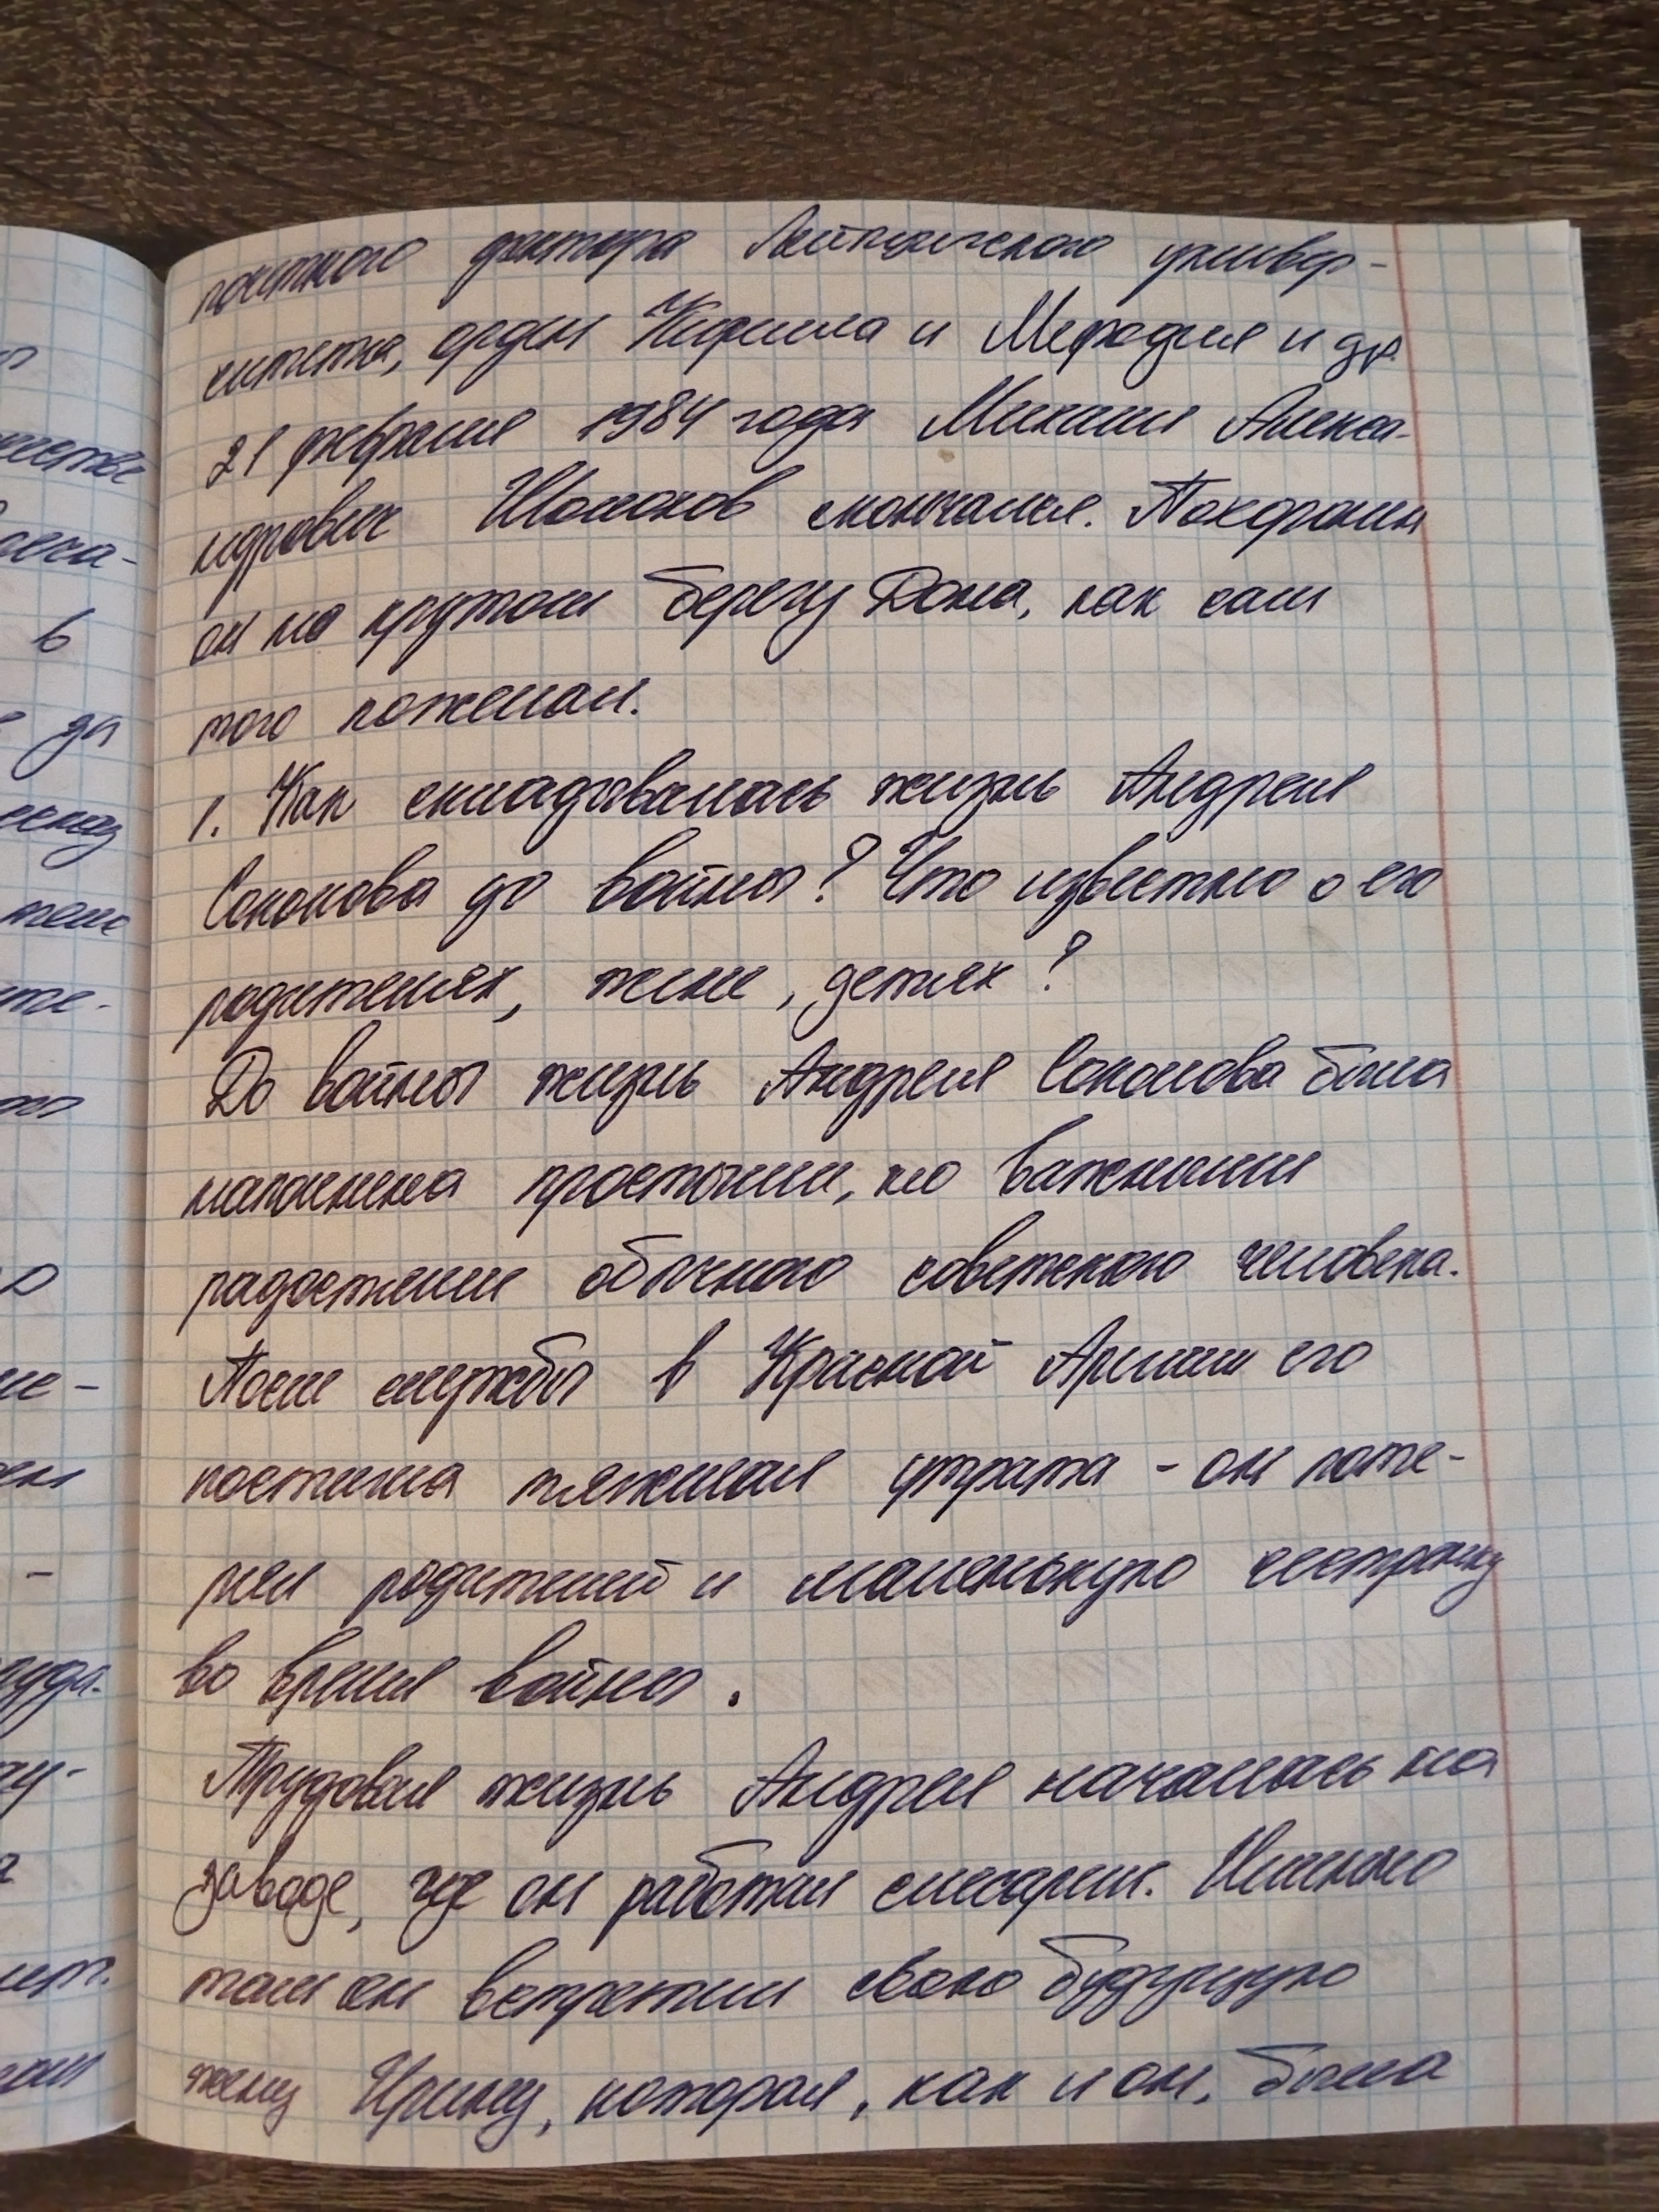 почетного доктора Лейпцигского универ-
ситета, орден Кирилла и Мефодия и др.
21 февраля 1984 года Михаил Алекса-
ндрович Шолохов скончался. Похоронен
он на крутом берегу Дона, как сам
того пожелал.
1. Как складывалась жизнь Андрея
Соколова до войны? Что известно о его
родителях, жене, детях?
До войны жизнь Андрея Соколова была
наполнена простыми, но важными
радостями обычного советского человека.
После службы в Красной Армии его
постигла тяжелая утрата - он поте-
рял родителей и маленькую сестренку
во время войны.
Трудовая жизнь Андрея началась на
заводе, где он работал слесарем. Именно
там он встретил свою будущую
жену Ирину, которая, как и он, была